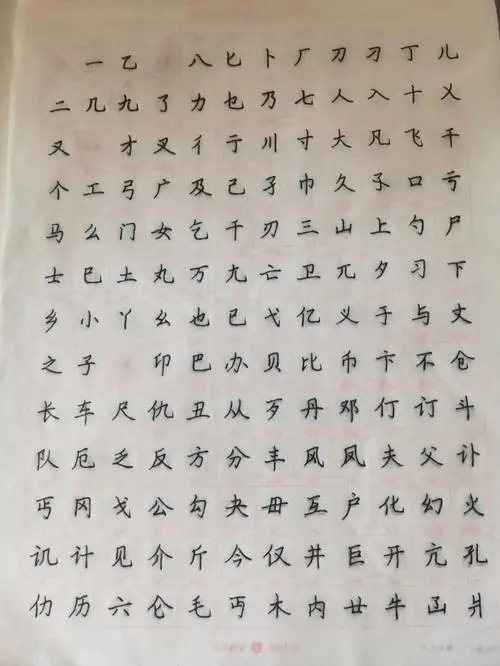 一 乙 八 匕 卜 厂 刀 刁 丁 儿
二 几 九 了 力 乜 乃 七 人 入 十 乂
又 才 叉 彳 亍 川 寸 大 凡 飞 干
个 工 弓 广 及 己 孑 巾 久 孓 口 亏
马 么 门 女 乞 千 刃 三 山 上 勺 尸
士 巳 土 丸 万 亡 卫 兀 夕 习 下
乡 小 丫 幺 也 已 弋 亿 义 于 与 丈
之 子 印 巴 办 贝 比 币 卞 不 仓
长 车 尺 仇 丑 从 歹 丹 邓 仃 订 斗
队 厄 乏 反 方 分 丰 风 凤 夫 父 讣
丐 冈 戈 公 勾 夬 毋 互 户 化 幻 火
讥 计 见 介 斤 今 仅 井 巨 开 亢 孔
仂 历 六 仑 毛 丏 木 内 廿 牛 爿